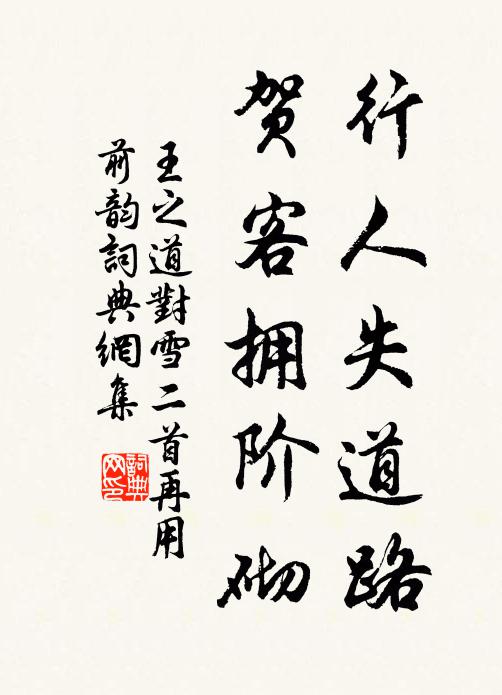 行人失道路
贺客拥阶砌
王之道對雪二首再用
前韵詞典網集
詞典
网印